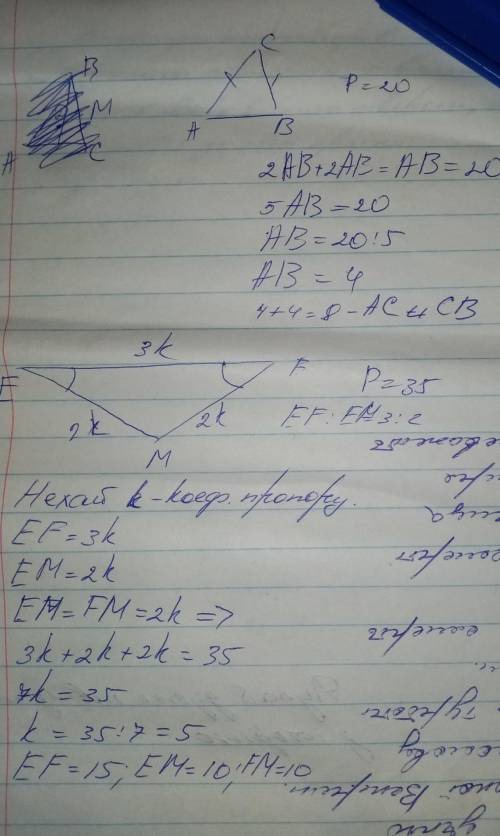 B
M
A
C
C
A
B
P=20
2AB+2AB=AB=20
5AB=20
AB=20:5
AB=4
4+4=8-AC и CB
3k
E
F
2k
2k
M
P=35
EF:EM=3:2
Нехай k-коеф. пропорц.
EF=3k
EM=2k
EM=FM=2k=>
3k+2k+2k=35
7k=35
k=35:7=5
EF=15; EM=10; FM=10